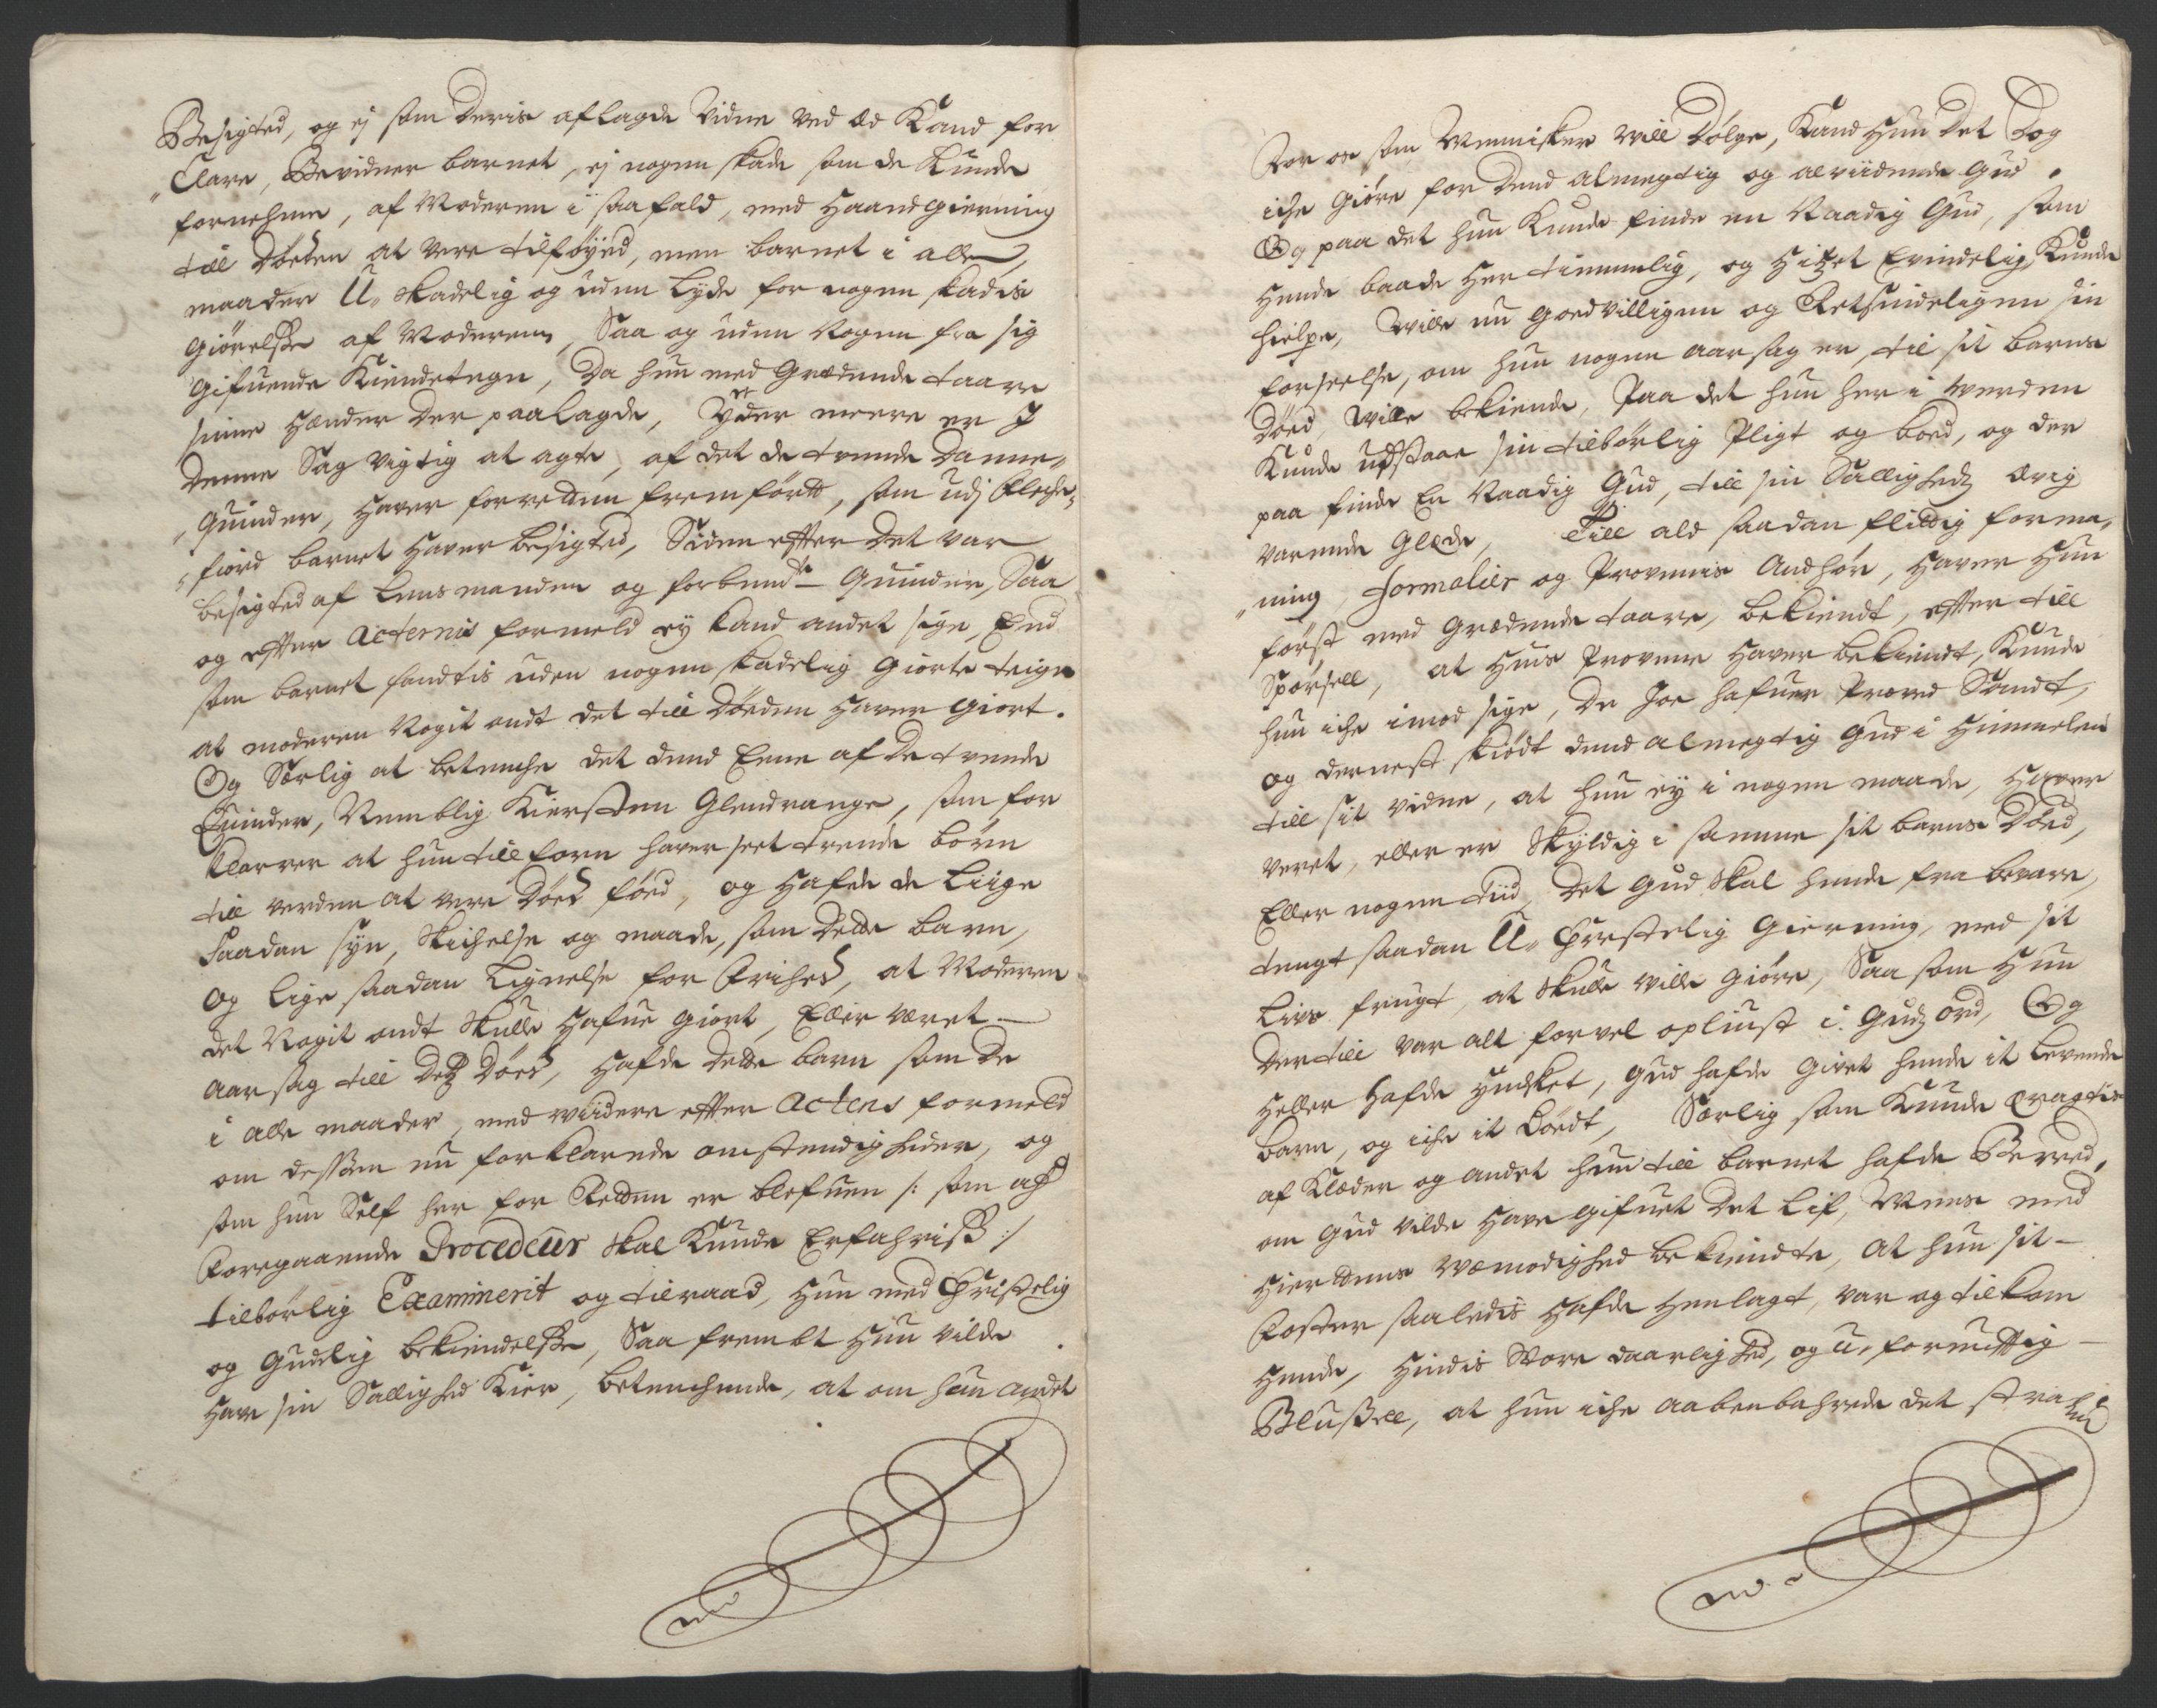 Besigted, og ej som deris aflagde Vidne ved æd Kand for
„Clare, Bevidner barnet, ej nogen skade som de Kunde
fornehme, af Moderen i saafald, med Haandgierning
till døden at vere tilføyed, men barnet i alle
maader U„skadelig og uden Lyde for nogen skadis
giørelsse af Moderen, Saa og uden Nogen fra sig
gifuende Kiendetegn, Da hun med Grædende taare
sinne Hænder der paalagde, Yder meere er I
denne Sag vigtig at agte, af det de tvende danne„
„Quinder, Haver for retten fremført, som udj Fleche„
„fiord barnet Haver besigted, Siden effter det var
besigted af Lensmanden og forbemte Quinder, Saa
og effter Acternis formeld ej kand andet sige, End
som barnet fandtis uden nogen skadelig giorte teign
at moderen Nogit ondt det till døden Haver giort.
Og Særlig at betenche det dend Eene af de tvende
Quinder, Nemblig Kiersten Glendrange, som for
klarer at hun tillforn haver seet trende børn
till verden at vere død fød, og Hafde de Liige
Saadan syn, skichelse og maade, som dette barn,
og lige saadan Lignelse for Frihed, at Moderen
det Nogit ondt skulle Hafue giort, Eller været
aarsag till detz død, Hafde dette barn som de
i alle maader, med viidere effter Actens formeld
om dessen nu forklarede omstendigheder, og
som hun Self her for Retten er blefuen /: som aff
Foregaaende Procedeur skal Kunde Erfahris :/
tilbørlig Examinerit og tilraad, Hun med Christelig
og Gudelig bekiendelsse, Saa frembt Hun vilde
Have sin Sallighed Kier, betenchende, at om hun andet
For os som Mennisker vill dølge, Kand Hun det dog
iche giøre for dend almegtig og alviidende Gud.
Og paa det hun Kunde finde en Naadig Gud, som
Hende baade Her timmelig, og Hisset Evindelig Kunde
hielpe, Wille nu goedvilligen og Retsindeligen sin
forseelse, om hun nogen aarsag er, til sit barns
død, Wille bekiende, Paa det hun her i Werden
Kunde udstaae sin tilbørlig Pligt og boed, og der
paa finde En Naadig Gud, till sin Sallighedz Ævig
varende Glæde, Till ald saadan flittig forma„
„ning, formalier og Provenis Andhør, Haver Hun
først med Grædende taare, bekiendt, effter till
Spørsell, at Huis Provene Haver bekiendt, Kunde
hun iche imod sige, De Joe hafuer Provet Sandt,
og dernest skiødt dend almegtig Gud i Himmelen
till sit vidne, at hun ej i nogen maade, Haver
veret, eller er Skyldig i samme sit barns død,
Eller nogen tid, det Gud skal hende fra bevare,
tengt saadan U„Christelig Gierning, med sit
Livs frugt, at skulle wille giøre, Saa som Hun
dertill var alt forvel opliust i Gudz ord, Og
Heller Hafde yndsket, Gud hafde givet hende it Levende
barn, og iche it dødt, Særlig som Kunde eragtis
af Klæder og andet hun till barnet hafde Bered,
om Gud vilde Have gifuet det Lif, Mens med
Hiertens Wemodighed bekiendte, At hun sit
Foster saaledis Hafde Henlagt, var og tilkom
Hende, Hindis Store daarlighed, og u„fornufftig
Blussell, at hun iche aabenbahrede det strax